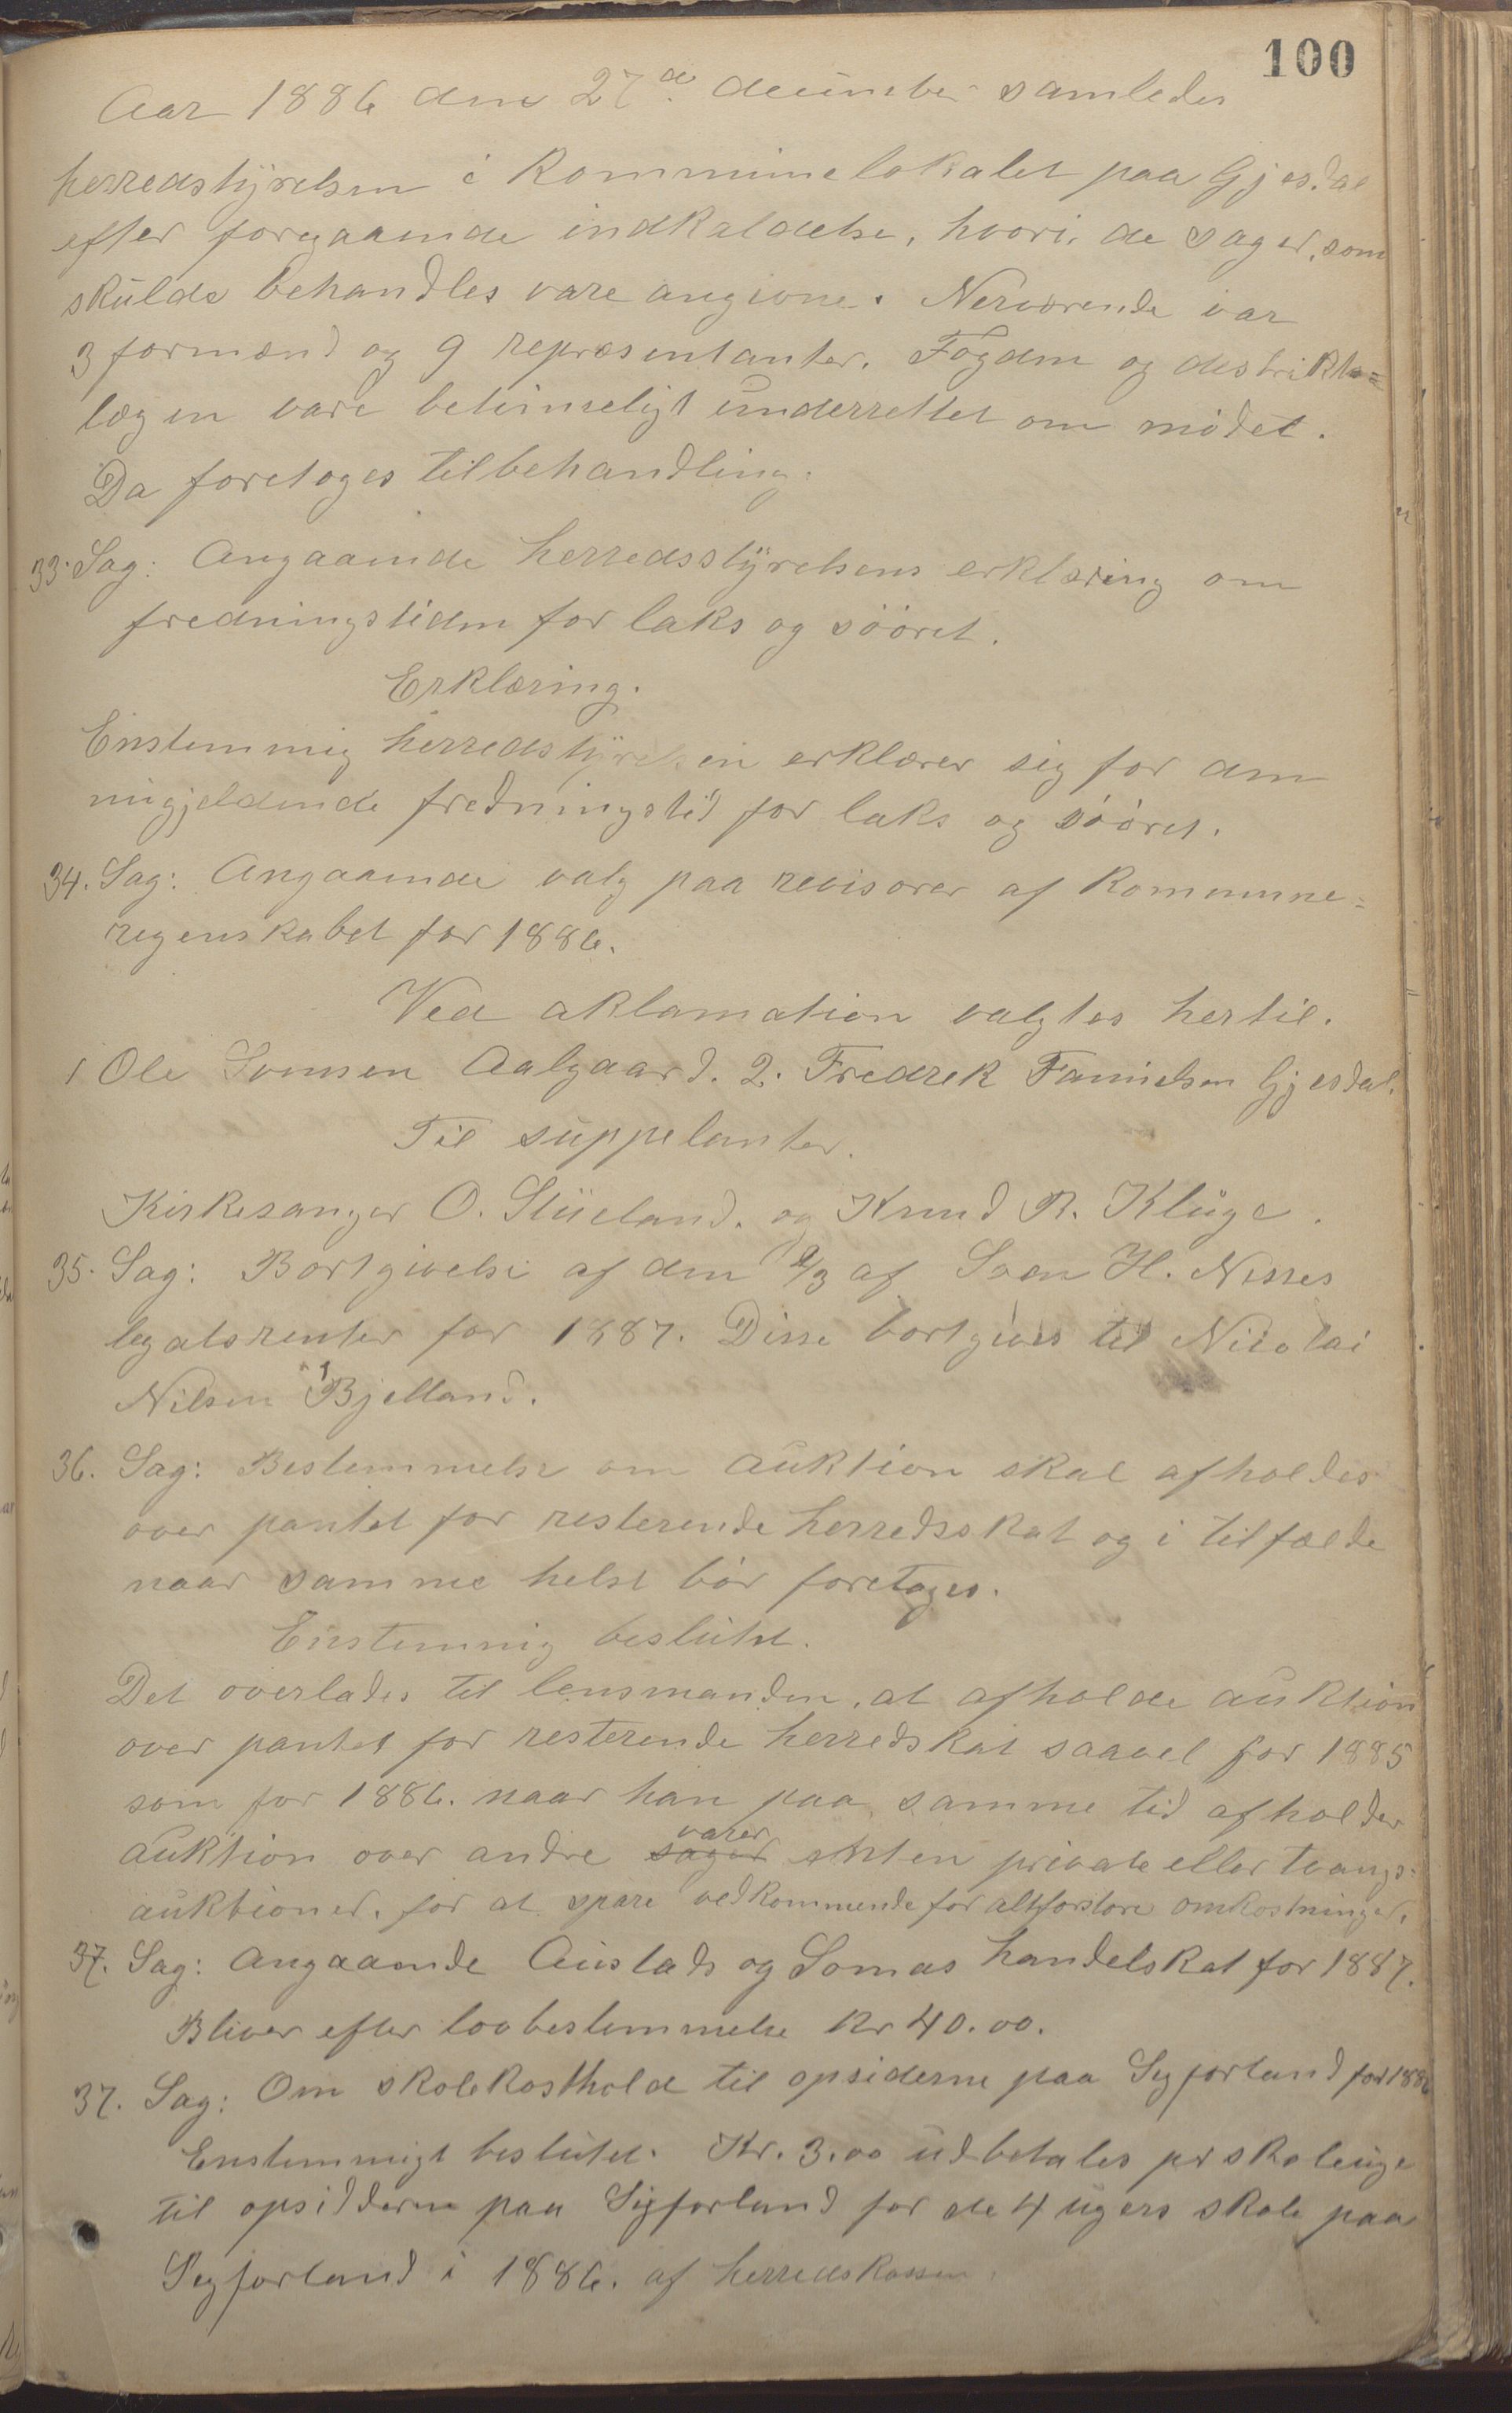 100
Aar 1886 den 27de december samledes
herredstyrelsen i Kommunelokalet paa Gjesdal
efter foregaaende indkaldelse, hvori de sager, som
skulde behandles vare angivne. Nerværende var
3 formænd og 9 repræsentanter. Fogden og destrikts=
lægen vare betimeligt underrettet om mødet.
Da foretoges til behandling.
33. Sag: Angaaende herredsstyrelsens erklæring om
fredningstiden for laks og sööret.
Erklæring.
Enstemmig herredstyrelsen erklærer sig for den
nugjeldende fredningstid for laks og sööret.
34. Sag: Angaaende valg paa revisorer af Kommune=
regenskabet for 1886.
Ved aklamation valgtes hertil.
1 Ole Svensen Aalgaard. 2. Fredrek Gjesdal.
Til suppelanter.
Kirkesanger O. Stueland. og Knud R. Kluge.
35. Sag: Bortgivelse af den 2/3 af Soen H. Nesses
legatsrenter for 1887. Disse bortgives til Nicolai
Nilsen Bjelland.
36. Sag: Bestemmelse om auktion skal afholdes
over pantet for resterende herredsskat og i tilfælde
naar samme helst bör foretages.
Enstemmig beslutet.
Det overlades til lensmanden, at afholde auktion
over pantet for resterende herredskat saavel for 1885
som for 1886. naar han paa samme tid afholder
auktion over andre sager varer enten private eller tvangs=
auktioner, for at spare vedkommende for altforstore omkostninger.
37. Sag: Angaaende Austads og Somas handelskat for 1887.
Bliver efter lovbestemmelse Kr 40.00.
37. Sag: Om skolekosthold til opsiderne paa Segjorland for 1886
Enstemmigt beslutet. Kr. 3.00 udbetales pr skoleuge
til opsidderne paa Segjorland for de 4 ugers skole paa
Segjorland i 1886. af herredskassen.